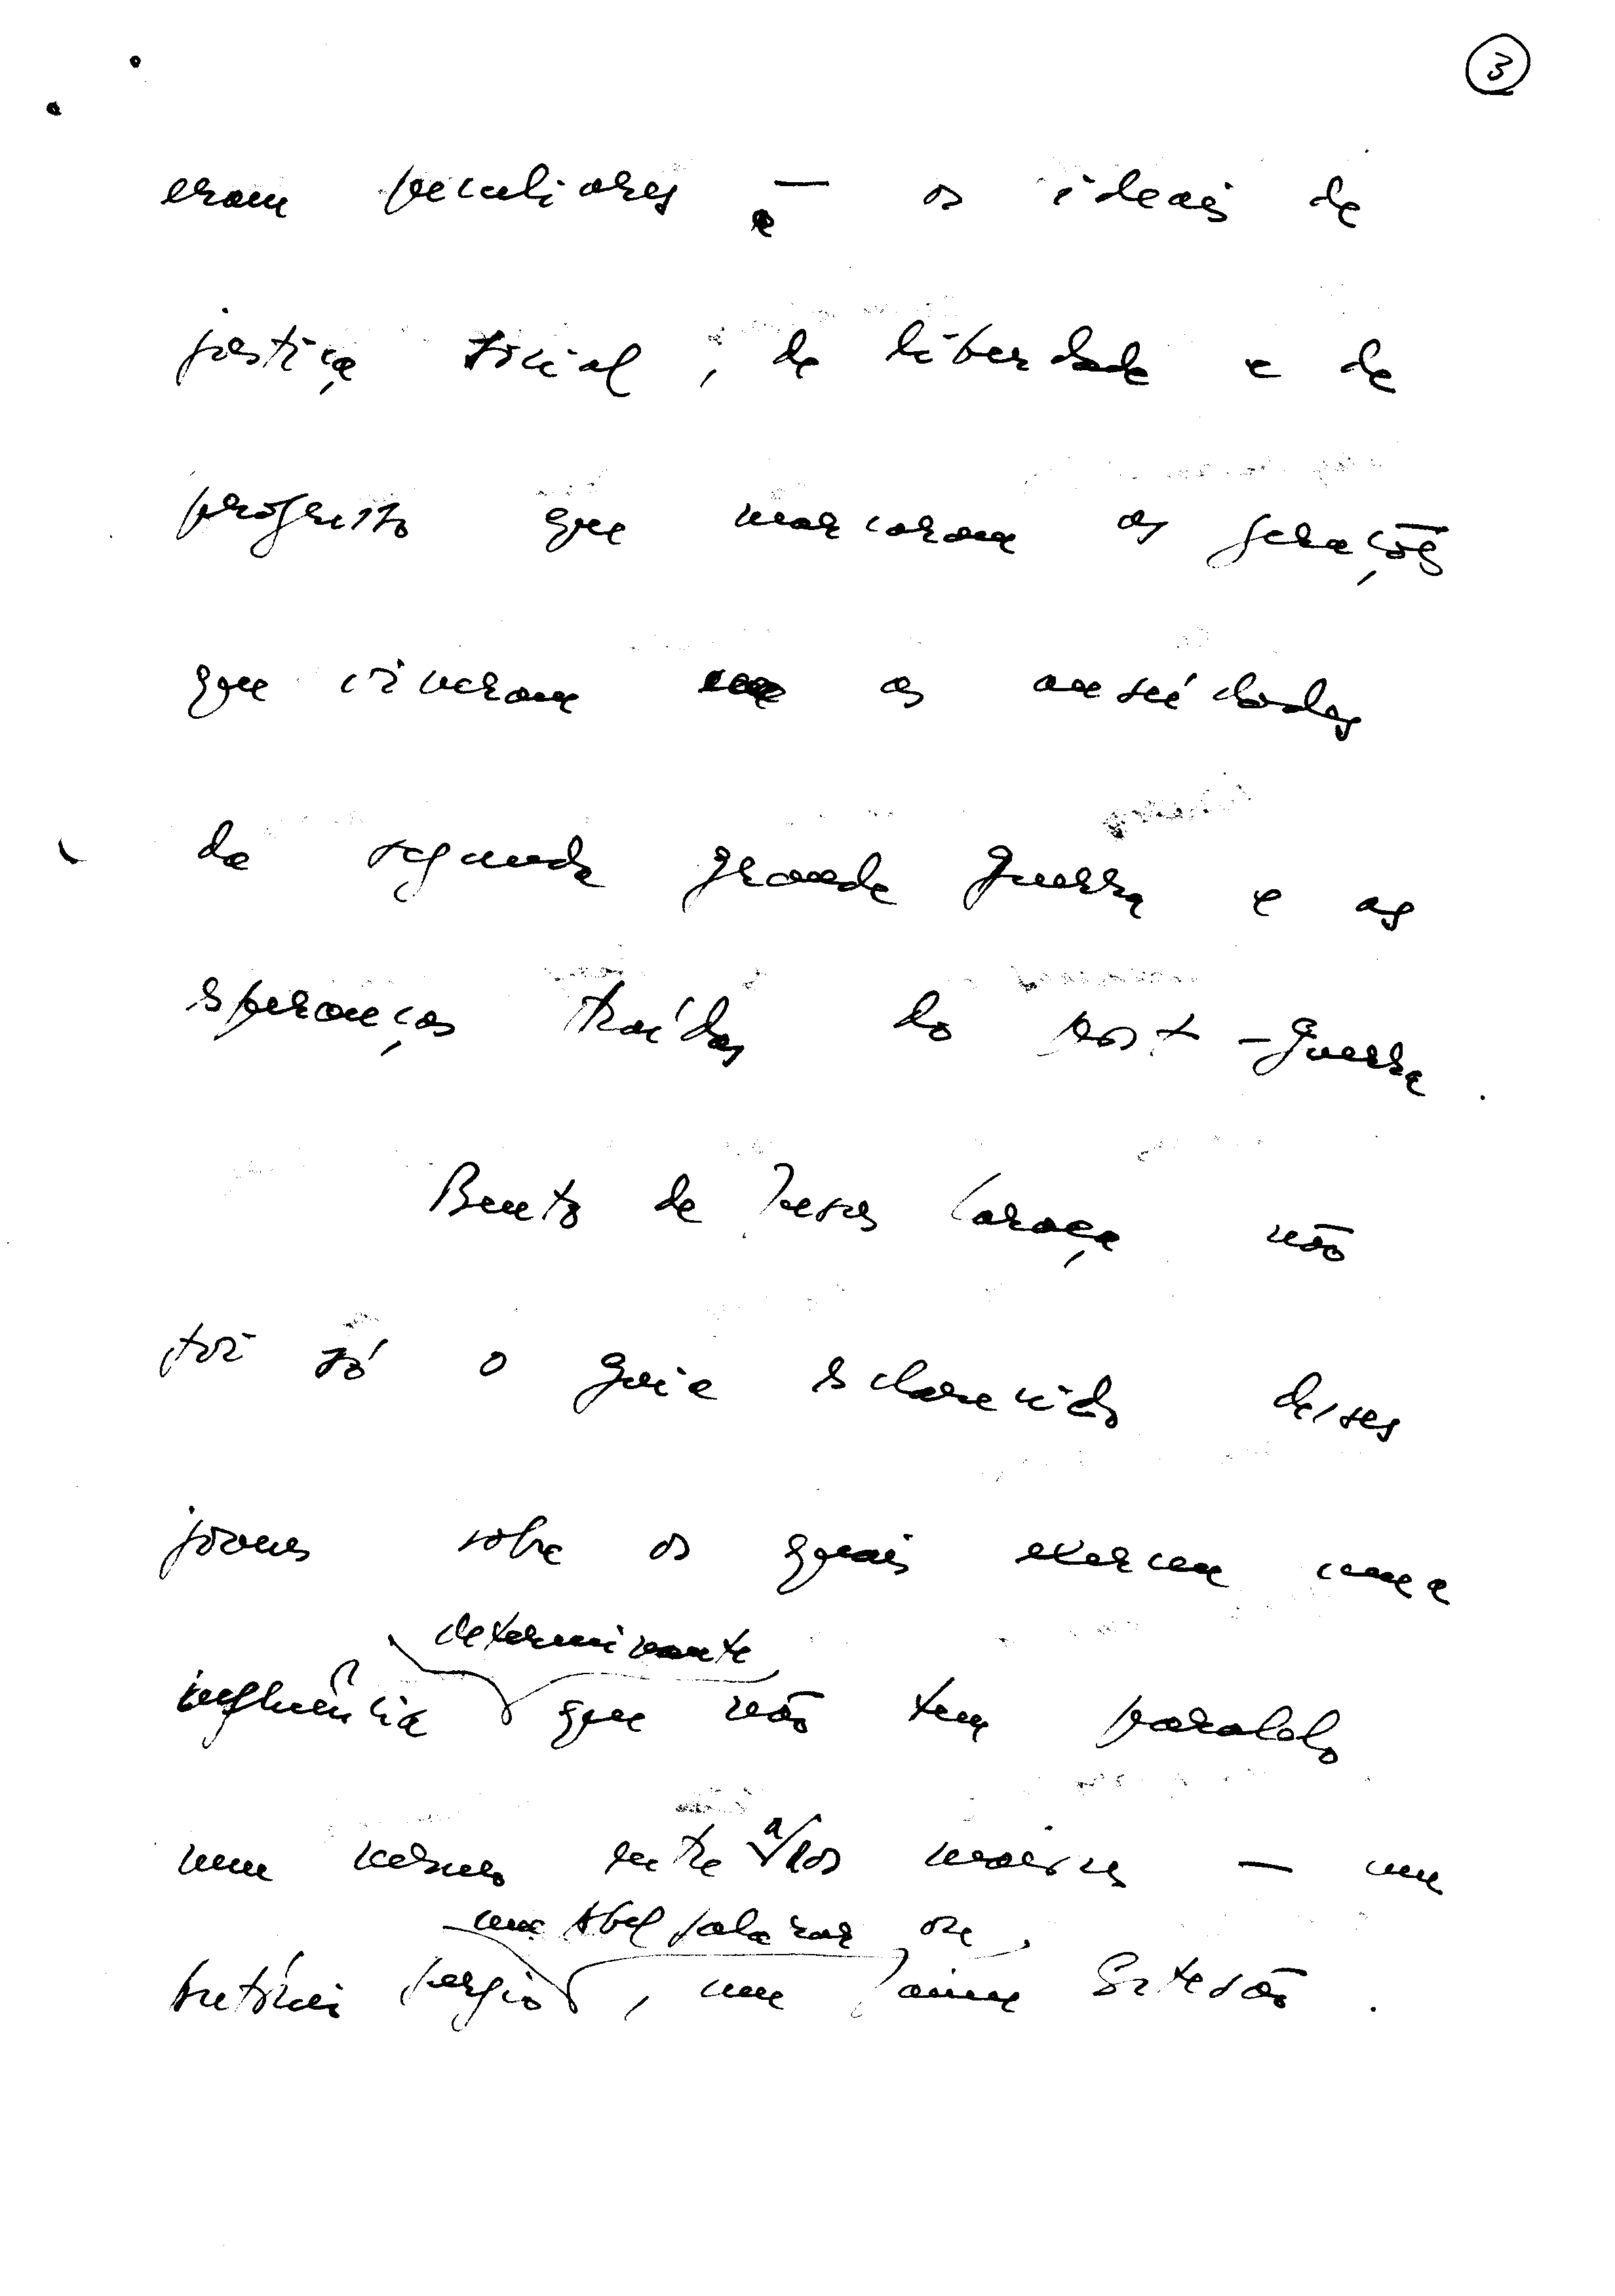 3
eram peculiares — os ideais de
justiça social, de liberdade e de
progresso que marcaram as gerações
que viveram as ansiedades
da segunda grande guerra e as
esperanças traídas do post-guerra.
Bento de Jesus Caraça não
foi só o guia esclarecido desses
jovens sobre os quais exerceu uma
determinante
influência que não tem paralelo
nem mesmo entre a/los maiores — um
um Abel Salazar ou
António Sérgio, um Jaime Cortesão.